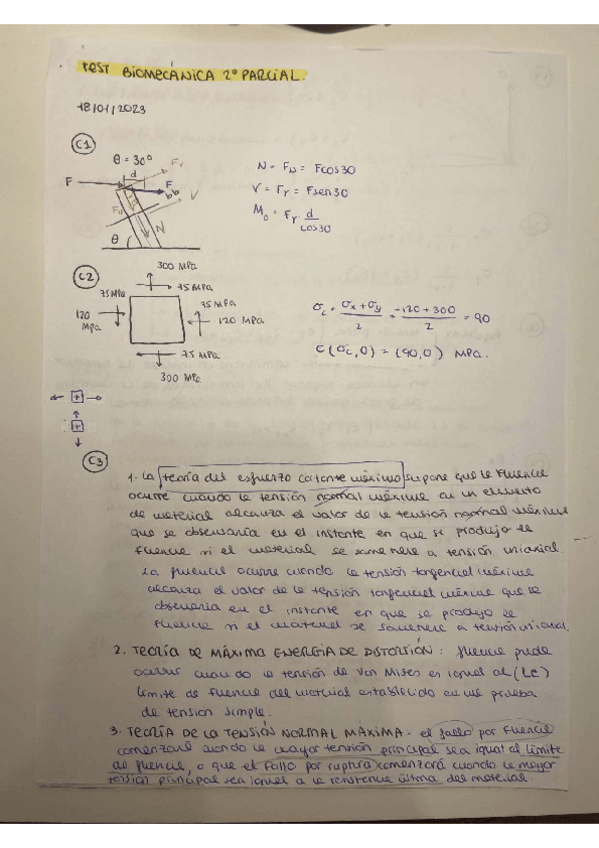 TEST BIOMECÁNICA 2º PARCIAL.
18/01/2023
C1
θ = 30º
d
F
Fv
F
bb
V
N
θ
N = FN = Fcos30
V = Fr = Fsen30
Mo = Fr d/cos30
C2
300 MPa
75 MPa
75 MPa
75 MPa
120 MPa
120 MPa
75 MPa
300 MPa
σc = σx + σy / 2 = -120 + 300 / 2 = 90
C (σc, 0) = (90,0) MPa.
C3
1. La teoría del esfuerzo cortante máximo supone que la fluencia
ocurre cuando la tensión normal máxima en un elemento
de material alcanza el valor de la tensión normal máxima
que se observaría en el instante en que se produjo la
fluencia si el material se somete a tensión uniaxial.
La fluencia ocurre cuando la tensión tangencial máxima
alcanza el valor de la tensión tangencial máxima que se
observaria en el instante en que se produjo la
fluencia si el material se somete a tensión uniaxial.
2. TEORÍA DE MÁXIMA ENERGÍA DE DISTORSIÓN: fluencia puede
ocurrir cuando la tensión de Von Mises es igual al (Lc)
límite de fluencia del material establecido en una prueba
de tension simple.
3. TEORÍA DE LA TENSIÓN NORMAL MÁXIMA: el fallo por fluencia
comenzará cuando la mayor tensión principal sea igual al límite
de fluencia, o que el fallo por ruptura comenzará cuando la mayor
tensión principal sea igual a la resistencia última del material.